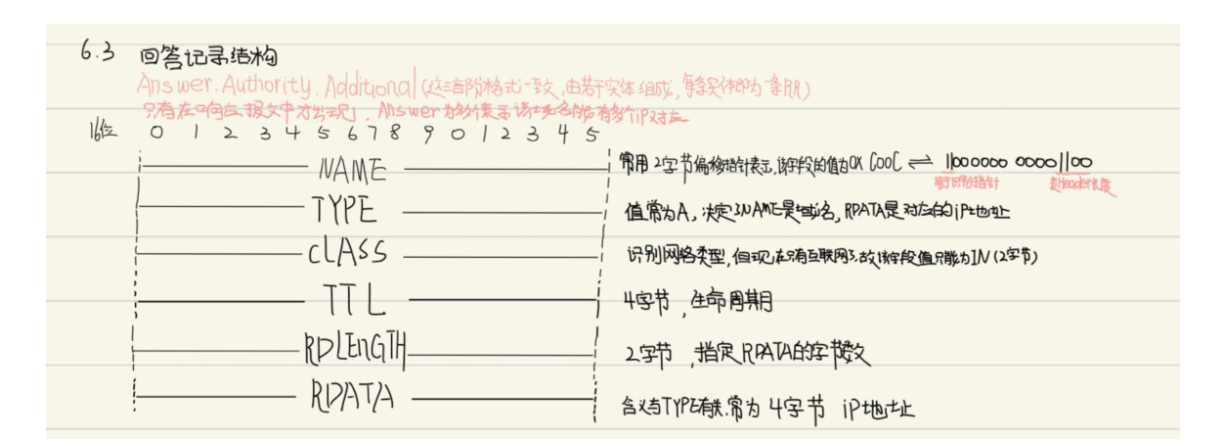 6.3 回答记录结构
Answer.Authority.Additional(这三部分格式一致,由若干实体组成,每条实体即为一条RR)
只有在响应报文中才出现,Answer为多代表示该域名能有多个iP对应
16位 0 1 2 3 4 5 6 7 8 9 0 1 2 3 4 5
NAME 常用2字节偏移指针表示,该字段的值为0X C00C ⇌ 11000000 00001100
用于识别指针 是Header长度
TYPE 值常为A,决定了NAME是域名,RDATA是对应的iP地址
CLASS 识别网络类型,但现在只有互联网了,故该字段值只能为IN(2字节)
TTL 4字节,生命周期
RDLENGTH 2字节,指定RDATA的字节数
RDATA 含义与TYPE有关.常为4字节 iP地址